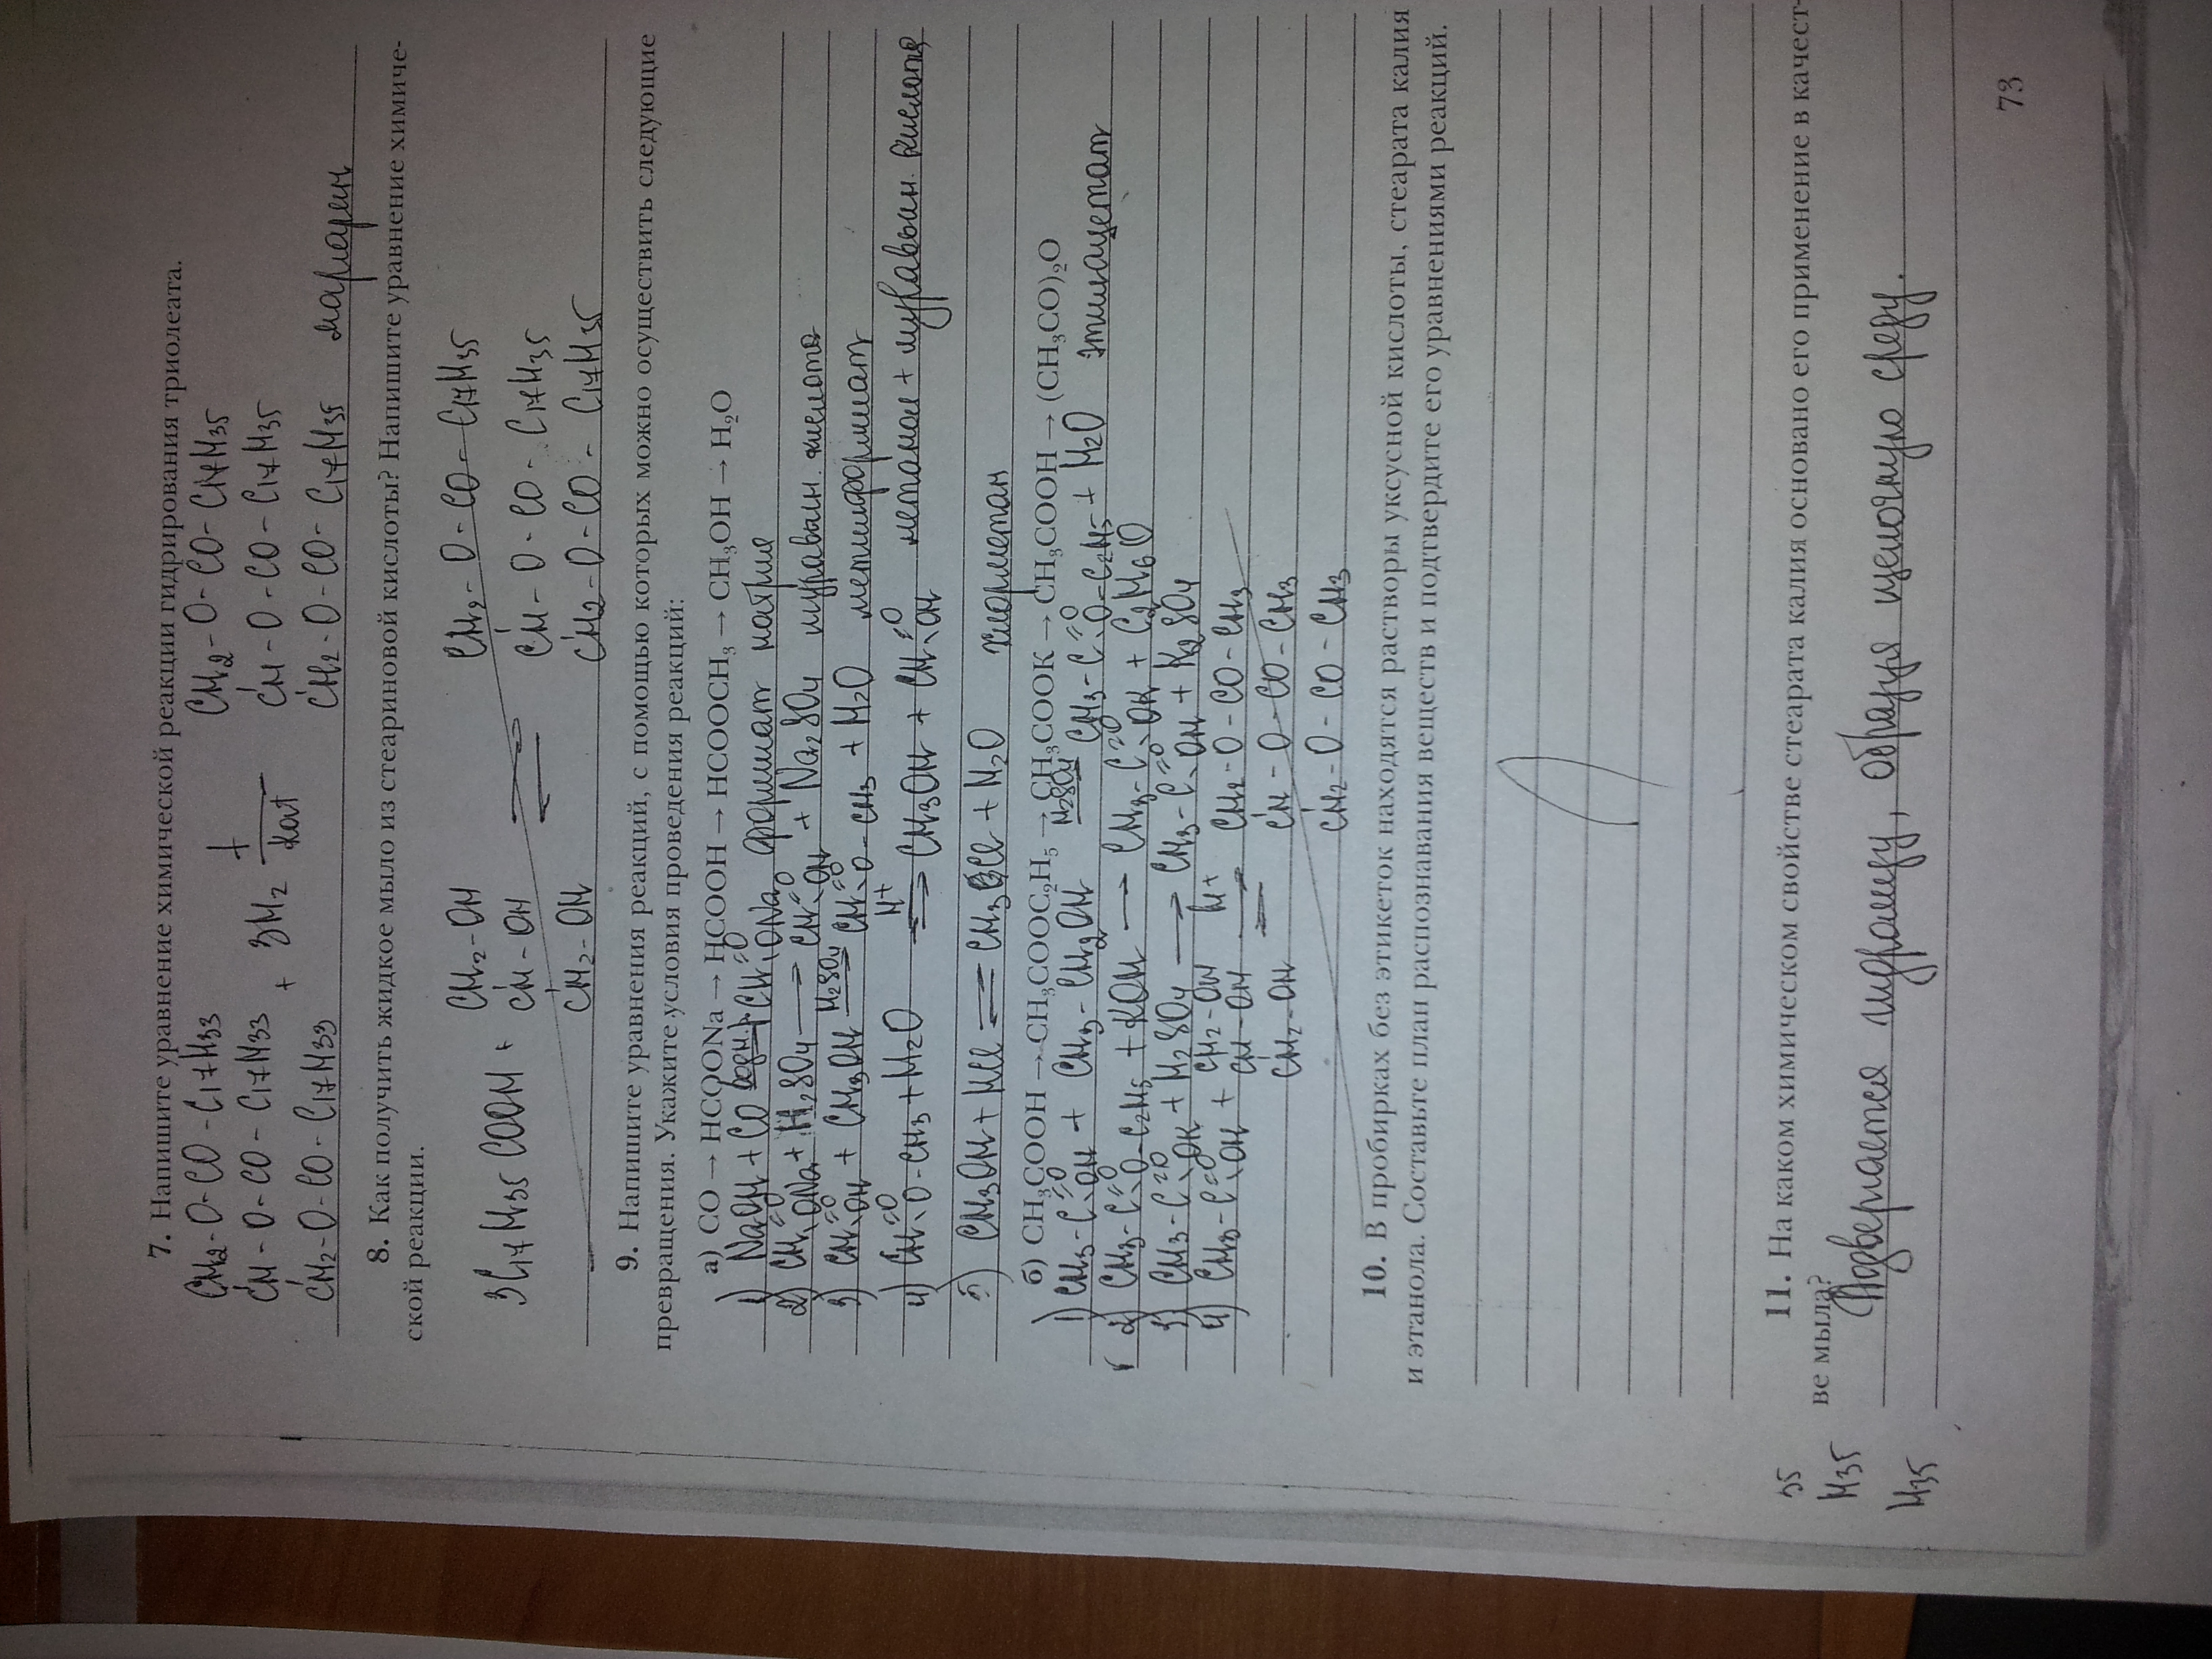 7. Напишите уравнение химической реакции гидрирования триолеата.
CH2-O-CO-C17H33 CH2-O-CO-C17H35
CH-O-CO-C17H33 + 3H2 t кат CH-O-CO-C17H35
CH2-O-CO-C17H33 CH2-O-CO-C17H35 маргарин
8. Как получить жидкое мыло из стеариновой кислоты? Напишите уравнение химиче-
ской реакции.
CH2-OH CH2-O-CO-C17H35
3C17H35COOH + CH-OH ⇌ CH-O-CO-C17H35
CH2-OH CH2-O-CO-C17H35
9. Напишите уравнения реакций, с помощью которых можно осуществить следующие
превращения. Укажите условия проведения реакций:
а) CO → HCOONa → HCOOH → HCOOCH₃ → CH₃OH → H₂O
1) NaOH + CO CH=O ONa формиат натрия
2) CH=O ONa + H2SO4 → CH=O OH + Na2SO4 муравьин. кислота
3) CH=O OH + CH3OH H2SO4 CH=O O-CH3 + H2O метилформиат
4) CH=O O-CH3 + H2O H+ ⇌ CH3OH + CH=O OH метанол + муравьин. кислота
5) CH3OH + HCl = CH3Cl + H2O хлорметан
б) CH₃COOH → CH₃COOC₂H₅ → CH₃COOK → CH₃COOH → (CH₃CO)₂O
1) CH3-C=O OH + CH3-CH2OH H2SO4 CH3-C=O O-C2H5 + H2O этилацетат
2) CH3-C=O O-C2H5 + KOH → CH3-C=O OK + C2H6O
3) CH3-C=O OK + H2SO4 → CH3-C=O OH + K2SO4
4) CH3-C=O OH + CH2-OH H+ CH2-O-CO-CH3
CH-OH ⇌ CH-O-CO-CH3
CH2-OH CH2-O-CO-CH3
10. В пробирках без этикеток находятся растворы уксусной кислоты, стеарата калия
и этанола. Составьте план распознавания веществ и подтвердите его уравнениями реакций.
11. На каком химическом свойстве стеарата калия основано его применение в качест-
ве мыла?
Подвергается гидролизу, образуя щелочную среду.
35
H35
H35
73